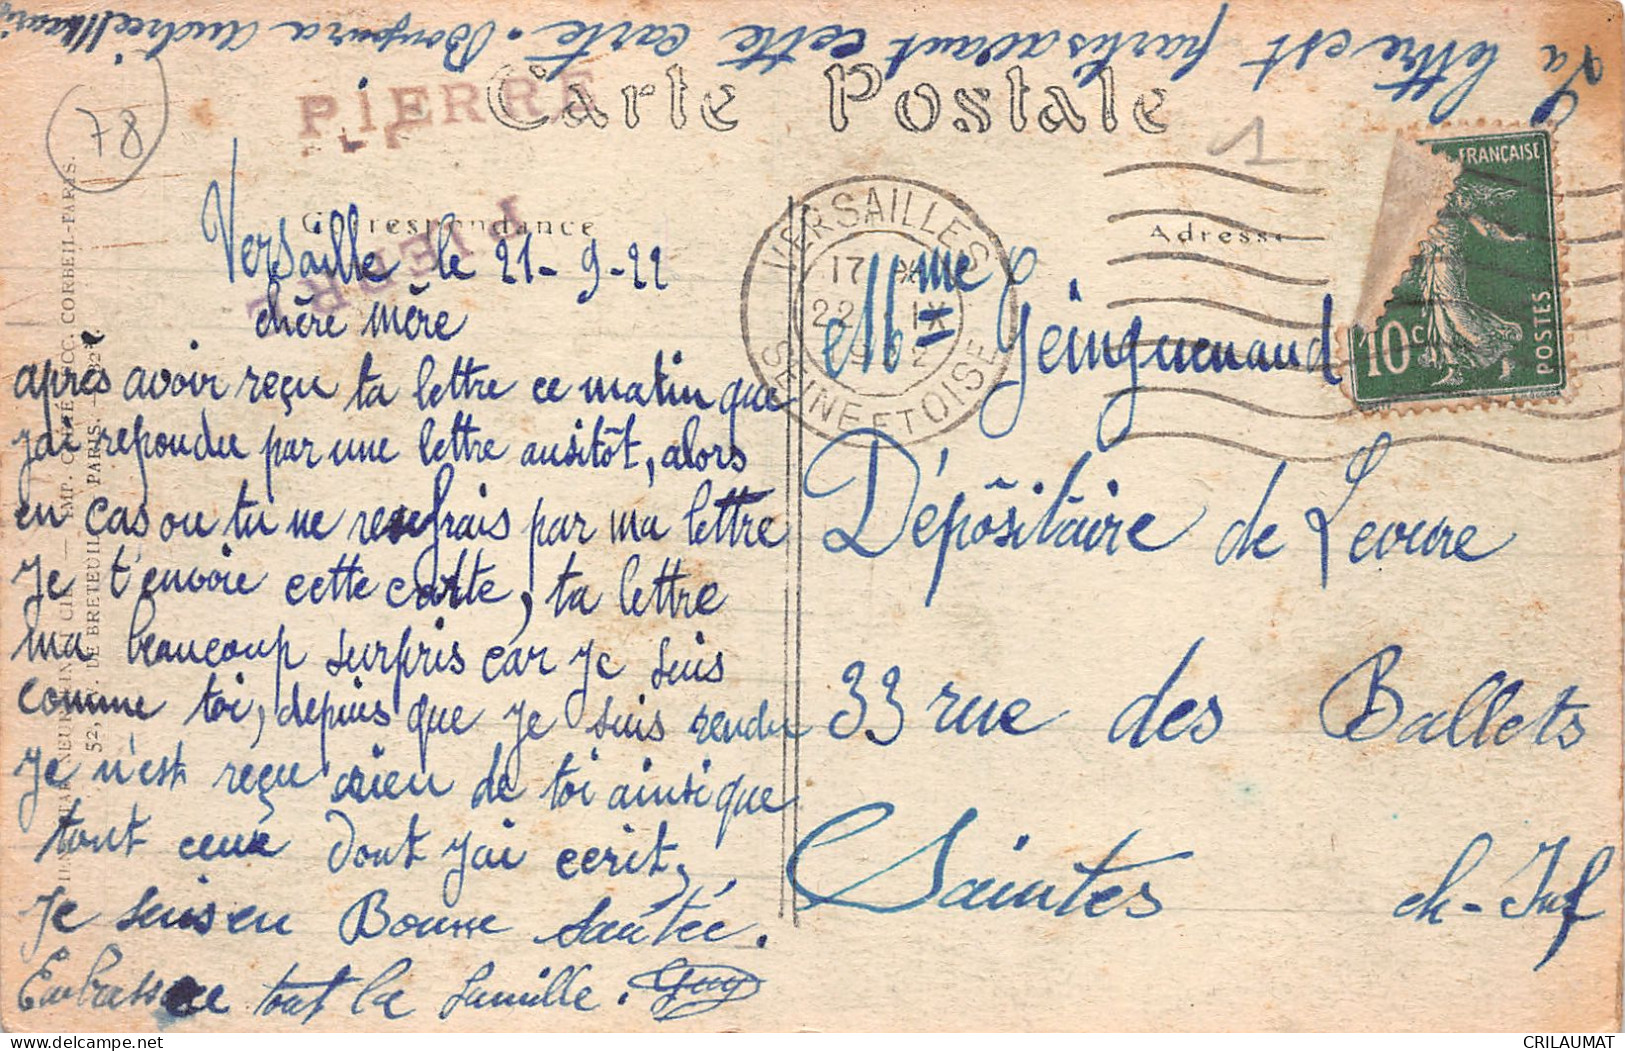 La lettre est partis avant cette carte. Bonjour a
Carte Postale
PIERRE
PIERRE
78
1
Correspondance
Adresse
Versaille le 21-9-22
chère mère
après avoir reçu ta lettre ce matin que
j'ai repondu par une lettre ausitôt, alors
en cas ou tu ne par ma lettre
Je t'envoie cette carte, ta lettre
ma beaucoup surpris car je suis
comme toi, depuis que je suis rendu
Je n'est reçu rien de toi ainsi que
tout ceux dont j'ai ecrit,
Je suis en Bonne Santée.
Embrasse tout la famille. Guy
VERSAILLES
17 * 
22 IX
SEINE ET OISE
FRANÇAISE
10c
POSTES
Mme Geinguenaud
Dépôsitaire de Levure
33 rue des Ballets
Saintes ch-Inf
CORBEIL-PARIS.
DE BRETEUIL, PARIS.
CRILAUMAT